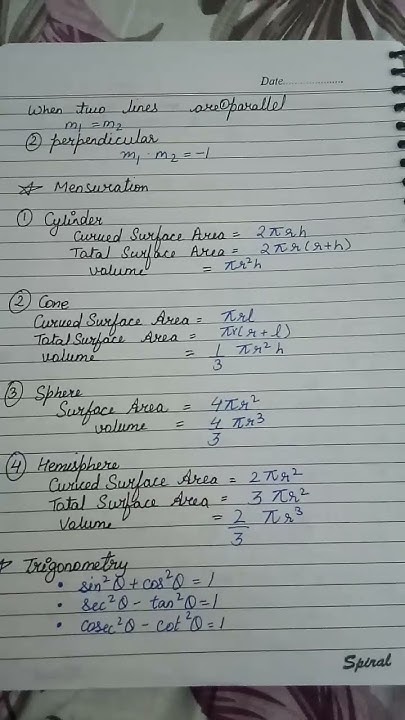 Date....................
When two lines are ① parallel
m₁ = m₂
② perpendicular
m₁ . m₂ = -1
☆ Mensuration
① Cylinder
Curved Surface Area = 2πrh
Total Surface Area = 2πr(r+h)
Volume = πr²h
② Cone
Curved Surface Area = πrl
Total Surface Area = πr(r+l)
Volume = 1/3 πr²h
③ Sphere
Surface Area = 4πr²
Volume = 4/3 πr³
④ Hemisphere
Curved Surface Area = 2πr²
Total Surface Area = 3πr²
Volume = 2/3 πr³
☆ Trigonometry
• sin²θ + cos²θ = 1
• sec²θ - tan²θ = 1
• cosec²θ - cot²θ = 1
Spiral